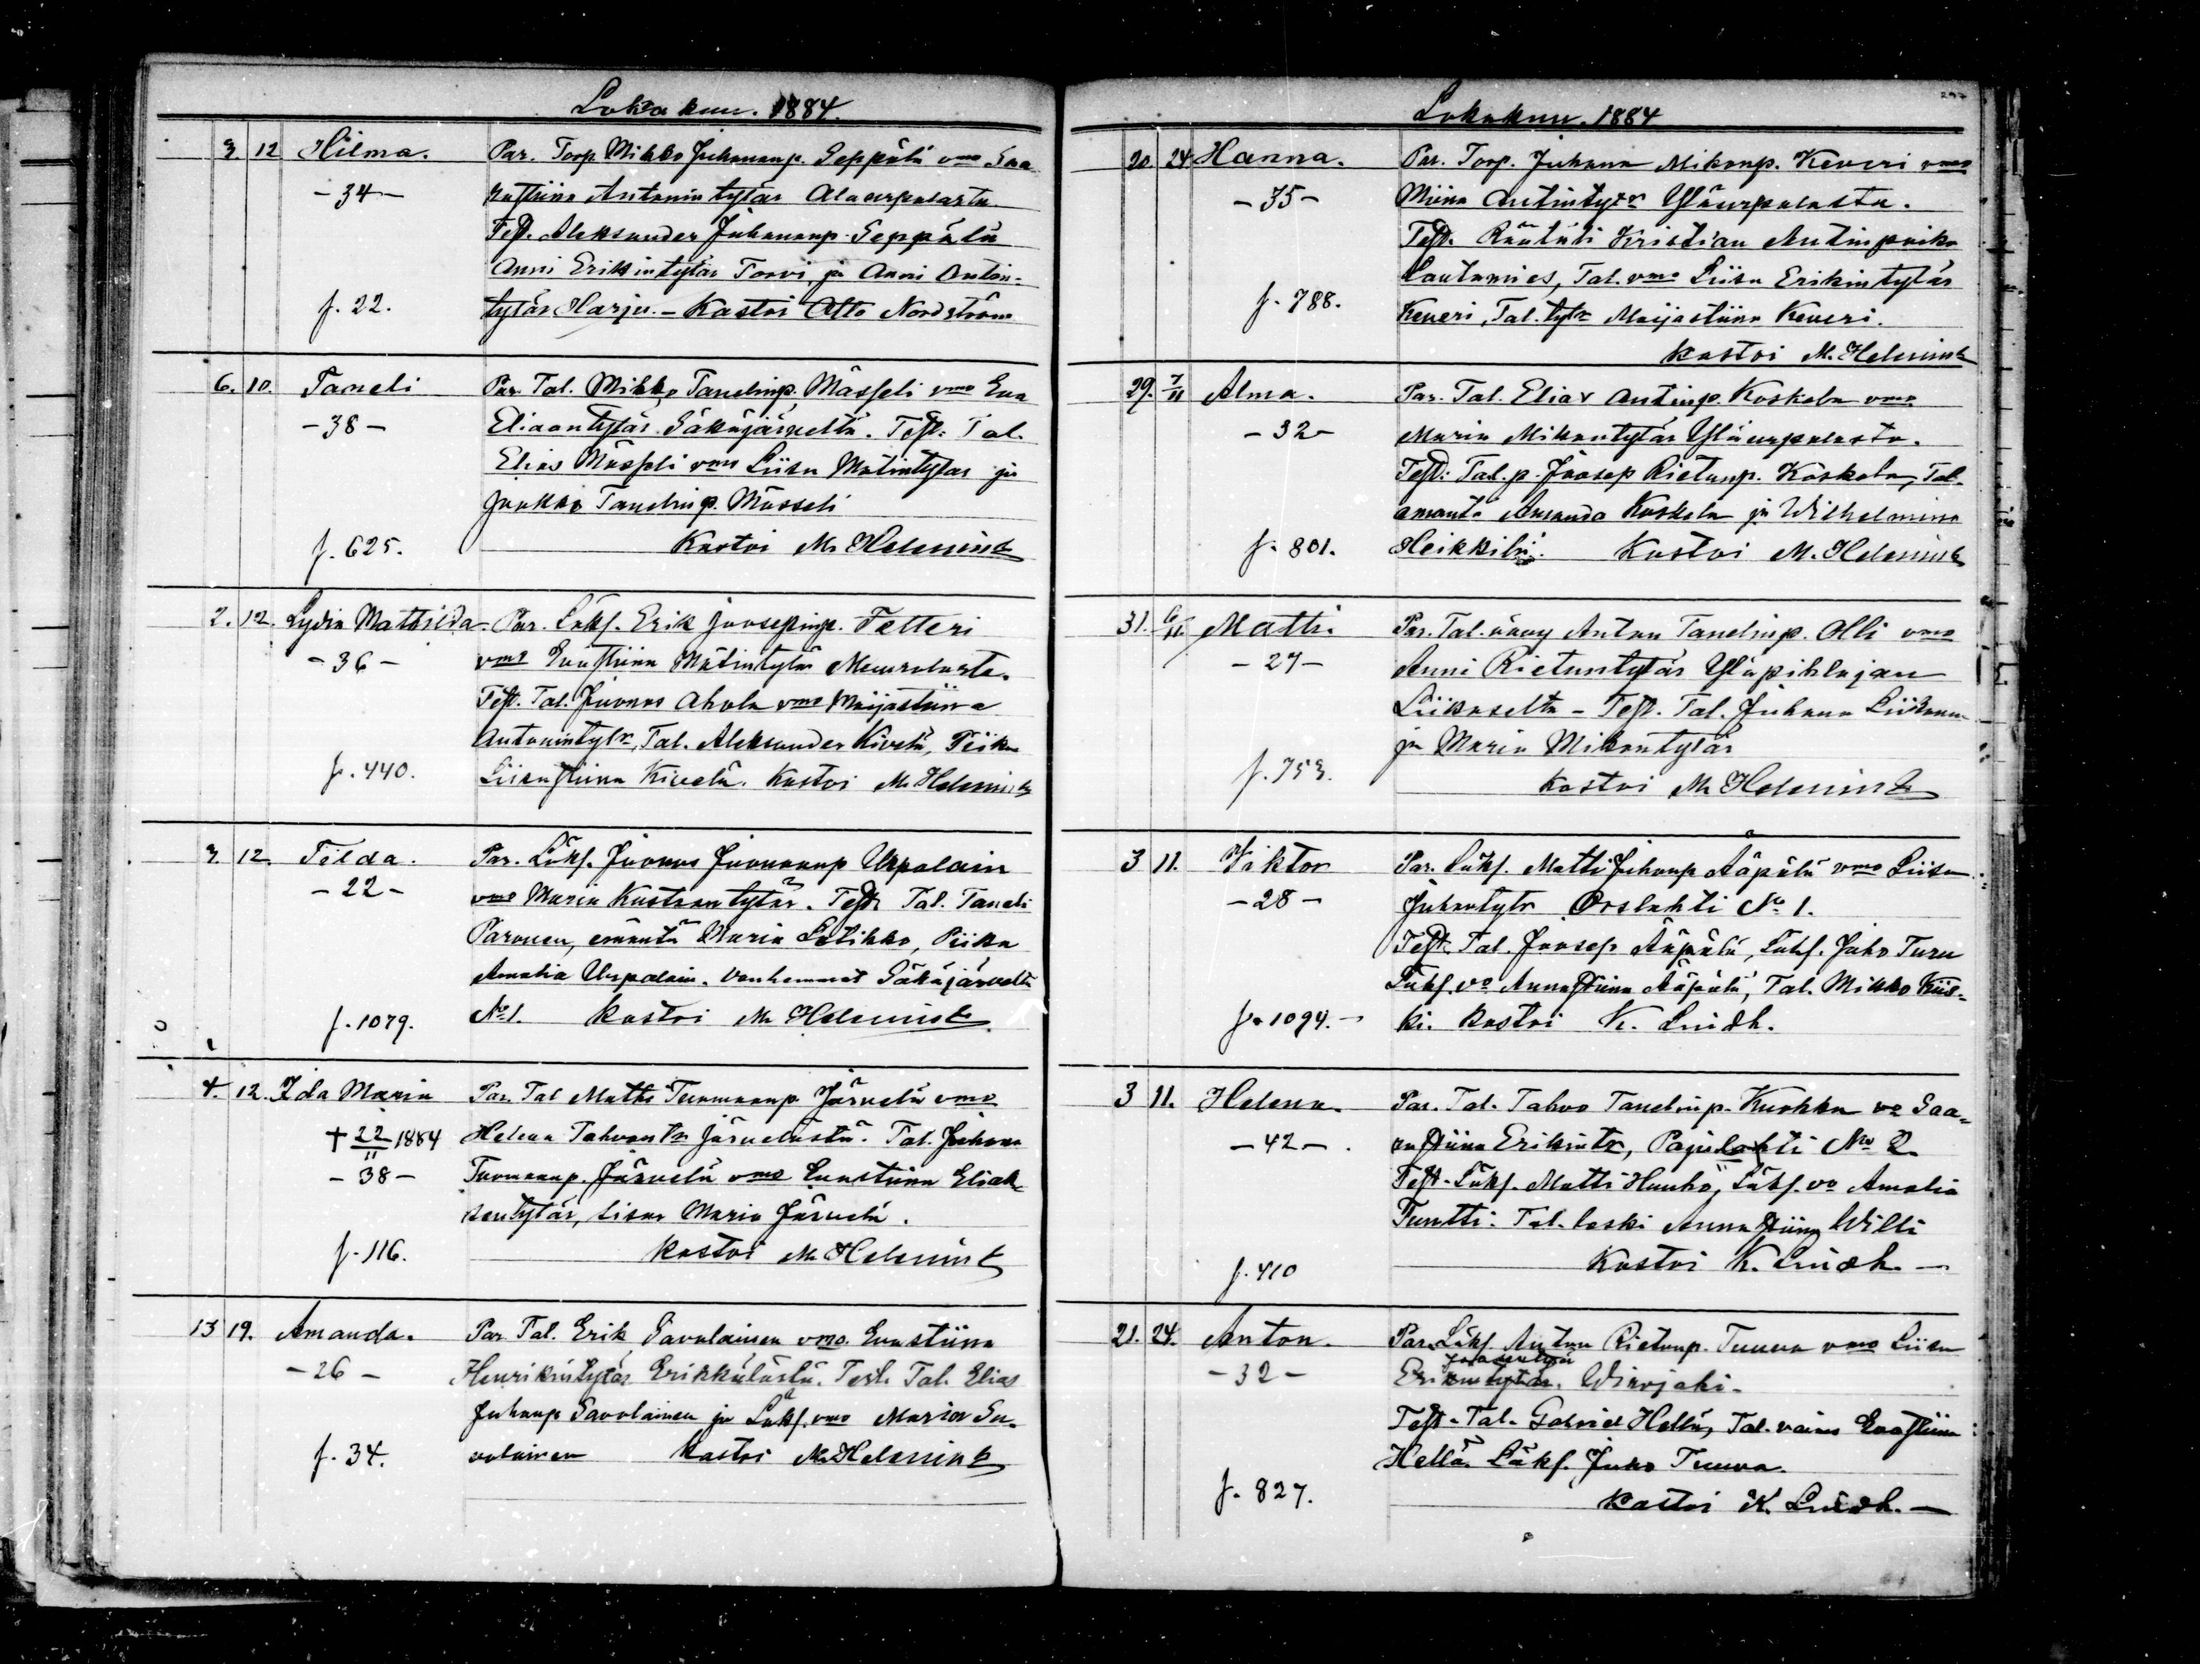 Lokakuu. 1884.
3 12 Hilma. Par. Torp. Mikko Juhananp. Seppälä vmo Saa
-34- rastiina Antonintytär Alaurpalasta
Test. Aleksander Juhananp. Seppälä
Anni Erikintytär Torvi, ja Anni Anton-
f. 22. tytär Harju. - Kastoi Otto Nordström
6. 10. Taneli Par. Tal. Mikko Tanelinp. Mässeli vmo Eva
-38- Eliaantytär Säkäjärveltä. Test: Tal.
Elias Mässeli vmo Liisa Matintytar ja
Jaakko Tanelinp. Mässeli
f. 625. Kastoi M. Helenius
2. 12. Lydia Mathilda. Par. Löks. Erik Joosepinp. Fetteri
-36- vmo Evastiina Matintytär Muurolasta.
Test. Tal. Joonas Ahola vmo Maijastiina
Antonintytr, Tal. Aleksander Kivelä, Piika
f. 440. Liisastiina Kivelä. Kastoi M. Helenius
3. 12. Tilda. Par. Löks. Joonas Joonaanp Urpalain
-22- vmo Maria Kustaantytär. Test. Tal. Taneli
Paronen, emäntä Maria Lotikko, Piika
Amalia Urpalain. Vanhemmat Säkäjärveltä
f. 1079. No 1. Kastoi M. Helenius
4. 12. Ida Maria Par. Tal Matti Tuomaanp Järvelä vmo
† 22/11 1884 Helena Tahvontr Järvelästä. Tal. Juhana
-38- Tuomaanp. Järvelä vmo Evastiina Eliak-
sentytär, sisar Maria Järvelä.
f. 116. Kastoi M. Helenius
13 19. Amanda. Par. Tal. Erik Savolainen vmo Evastiina
-26- Henrikintytär Erikkälästä. Test. Tal. Elias
Juhanp Savolainen ja Löks. vmo Maria Sa-
f. 34. volainen Kastoi M. Helenius
Lokakuu. 1884
20. 24 Hanna. Par. Torp. Juhana Mikonp. Keveri vmo
-35- Miina Antintytr Yläurpalasta.
Test. Räätäli Kristian Antinpoika
Lautamies, Tal. vmo Liisa Erikintytär
f. 788. Keveri, Tal. tytr Maijastiina Keveri.
Kastoi M. Helenius
29. 7/11 Alma. Par. Tal. Elias Antinp. Koskela vmo
-32- Maria Mikontytär Yläurpalasta.
Test: Tal. p. Joosep Rietunp. Koskela, Tal.
emäntä Amanda Koskela ja Wilhelmina
f. 801. Heikkilä. Kastoi M. Helenius
31. 6/11. Matti. Par. Tal. vävy Anton Tanelinp. Olli vmo
-27- Anni Rietuntytär Yläpihlajan
Liikaselta - Test. Tal. Juhana Liikanen
ja Maria Mikontytär
f. 753. Kastoi M. Helenius
3 11. Viktor Par. Löks. Matti Juhanp Ääpälä vmo Liisa
-28- Juhantytr Orslahti No 1.
Test. Tal. Joosep Ääpälä, Löks. Juho Turu
Löks. vo Annastiina Ääpälä, Tal. Mikko Kiis-
f. 1094. - ki. Kastoi K. Lindh.
3 11. Helena. Par. Tal. Tahvo Tanelinp. Kuokka vo Saa-
-42- rastiina Erikintr, Pajulahti No 2.
Test. Löks. Matti Hanhö, Löks. vo Amalia
Funtti. Tal. leski Annastiina Willi
f. 410 Kastoi K. Lindh. -
21. 24. Anton. Par. Löks. Anton Rietunp. Tuuva vmo Liisa
-32- Erikintytär. Wirojoki.
Test. Tal. Gabriel Hellä, Tal. vaimo Evastiina
Hellä. Löks. Juho Tuuva.
f. 827. Kastoi K. Lindh. -